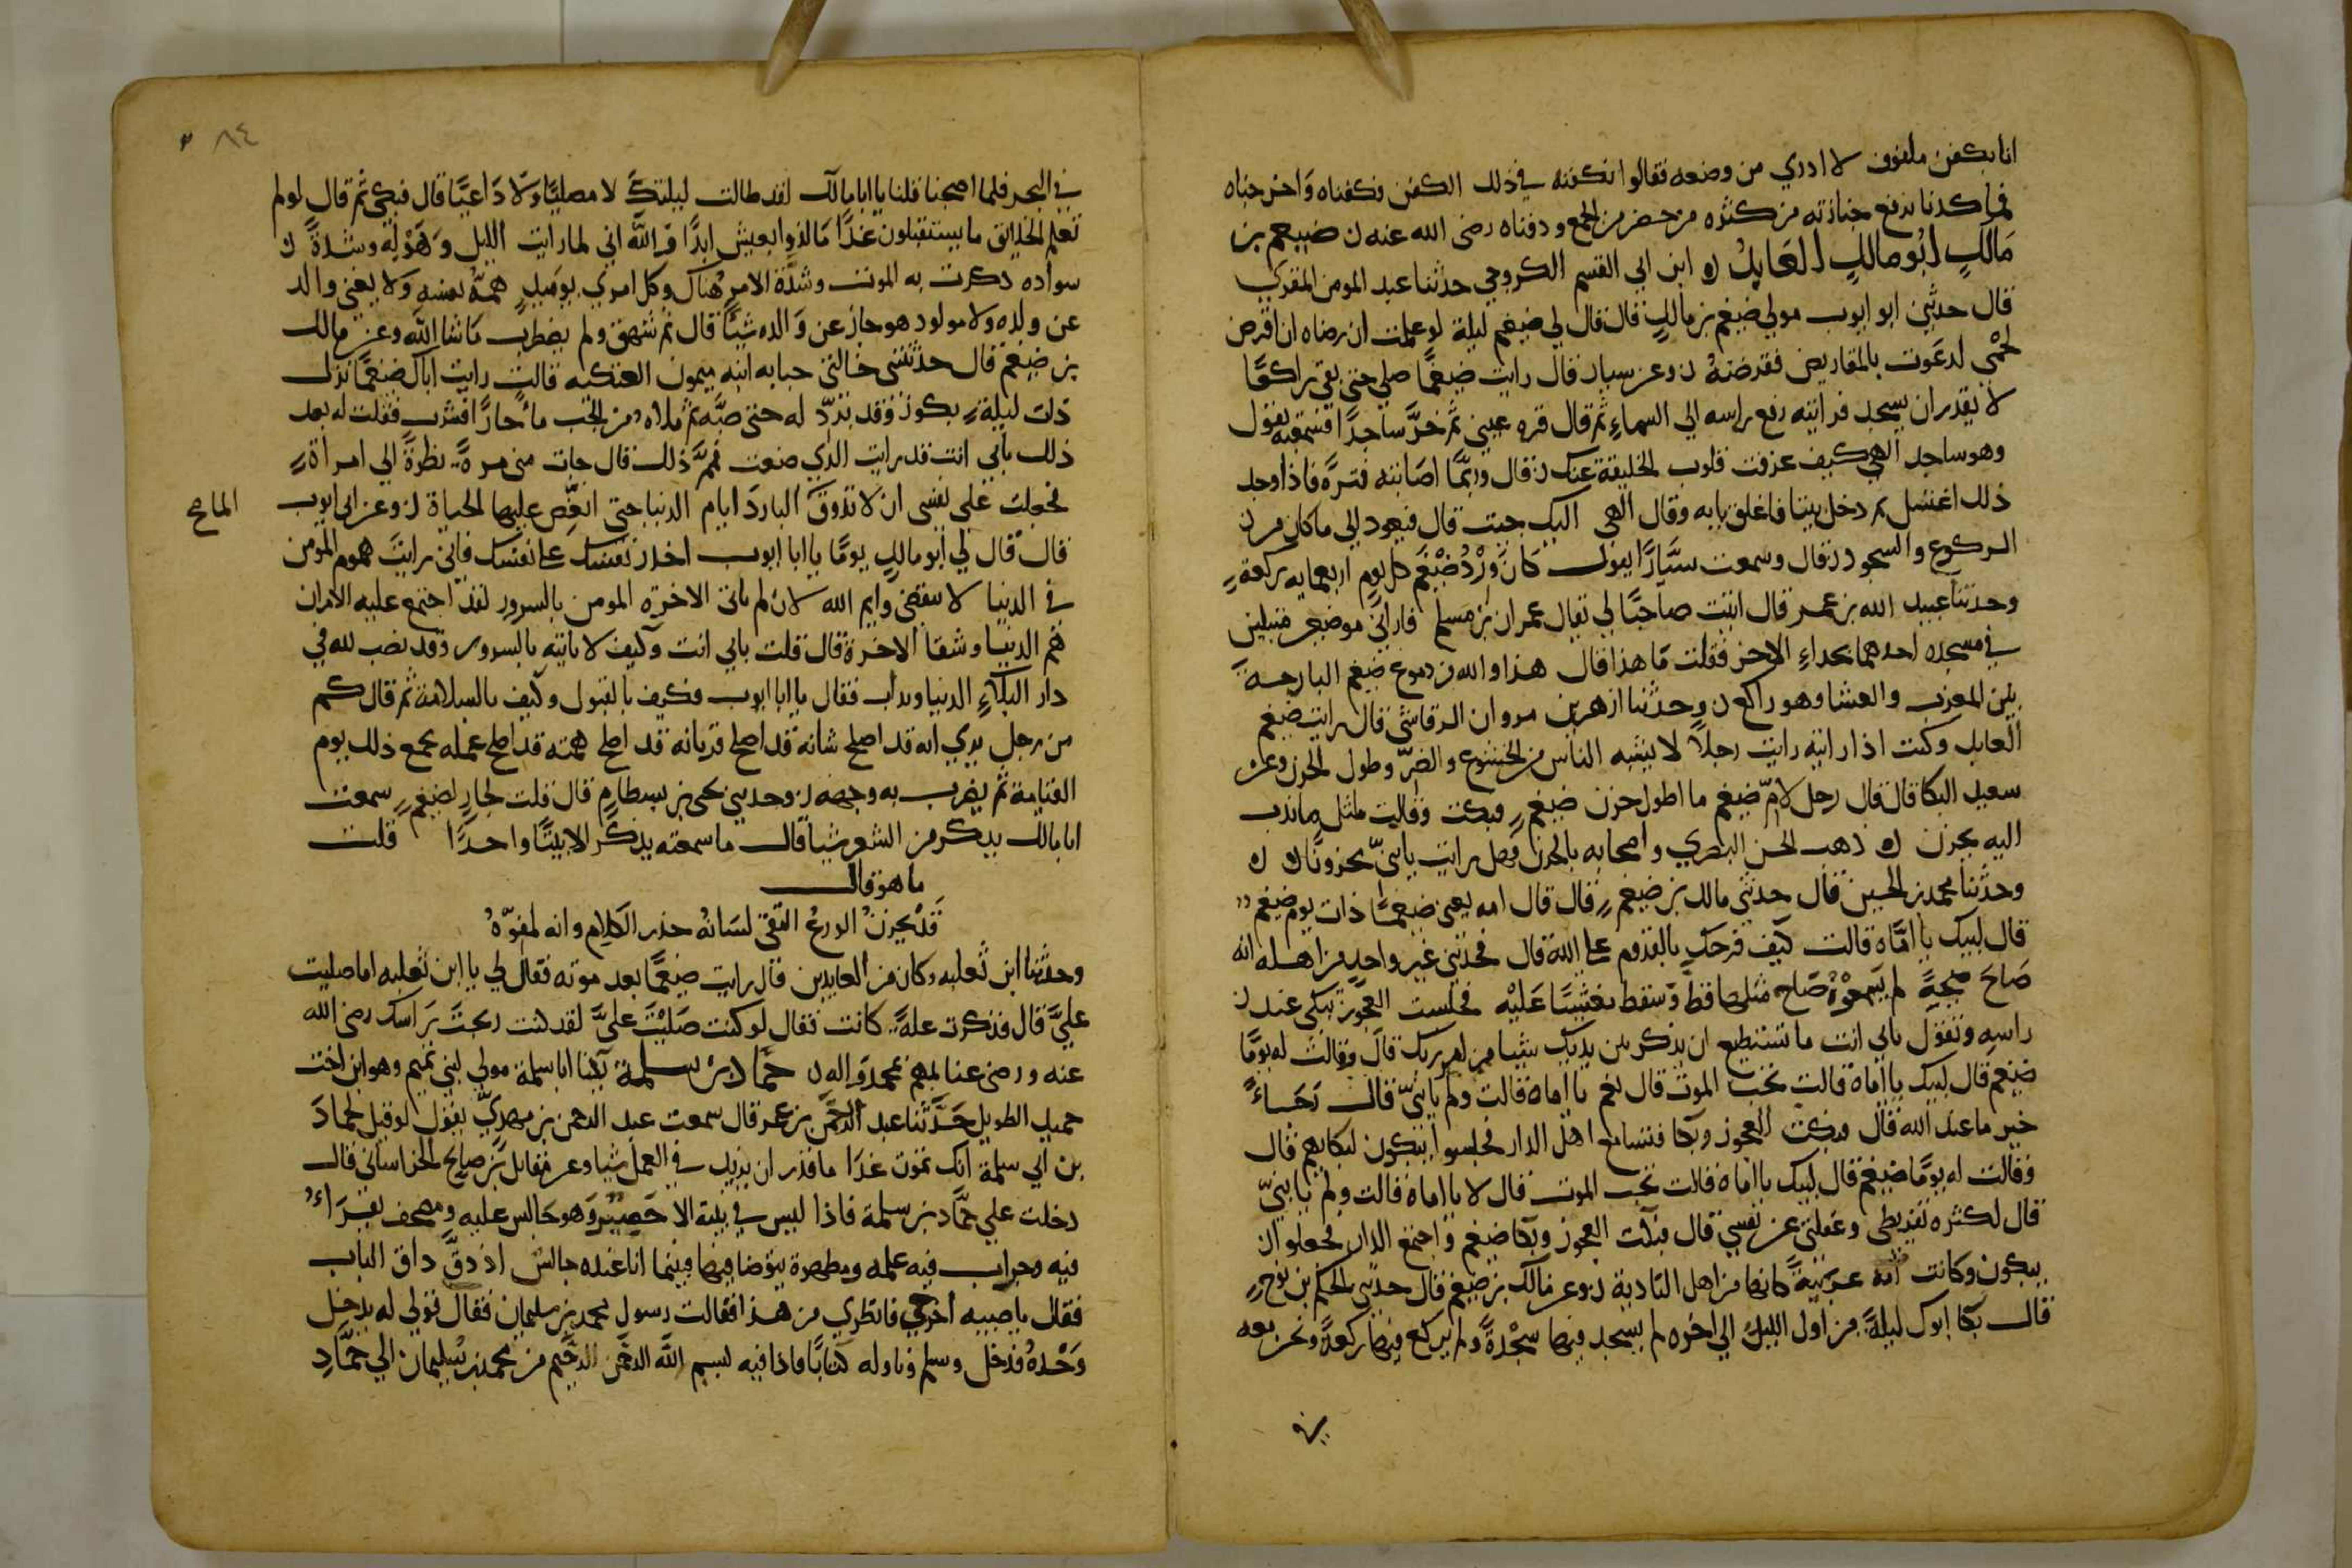 انا بكفن ملفوف لا ادري من وضعه فقالوا نكفنه في ذلك الكفن فكفناه واخرجناه
فما كدنا نرفع جنازته من كثره من حضر من الجمع ودفناه رضي الله عنه ن ضيغم بن
مالك ابو مالك العابد ابن ابي القسم الكروخي حدثنا عبد المومن المقري
قال حدثني ابو ايوب مولي ضيغم بن مالك قال قال لي ضيغم ليلة لو علمت ان رضاه ان اقرض
لحمى لدعوت بالمقاريض فقرضته ن وعن سيار قال رايت ضيغما صلي حتى بقي راكعا
لا يقدر ان يسجد فرايته رفع راسه الي السماء ثم قال قره عيني ثم خر ساجدا فسمعته يقول
وهو ساجد الهي كيف عزفت قلوب الخليقة عنك ن قال وربما اصابته فتره فاذا وجد
ذلك اغتسل ثم دخل بيتا فاغلق بابه وقال الهي اليك جيت قال فيعود الي ما كان من
الركوع والسجود ن قال وسمعت سيارا يقول كان ورد ضيغم كل يوم اربعمايه ركعة
وحدثنا عبيد الله بن عمر قال اتيت صاحبا لي يقال عمران بن مسلم فاراني موضعين مبتلين
في مسجده احدهما بحذاء الاخر فقلت ما هذا فقال هذا والله من دموع ضيغم البارحة
بين المغرب والعشا وهو راكع ن وحدثنا ازهر بن مروان الرقاشي قال رايت ضيغم
العابد وكنت اذا رايته رايت رجلا لا يشبه الناس من الخشوع والضر وطول الحزن وعن
سعيد البكا قال قال رجل لام ضيغم ما اطول حزن ضيغم فبكت وقالت لمثل ما ندب
اليه يحزن ن ذهب الحسن البصري واصحابه بالحزن وهل رايت يا بني محزونا ن
وحدثنا محمد بن الحسين قال حدثني مالك بن ضيغم قال قال امه يعني ضيغما ذات يوم ضيغم
قال لبيك يا اماه قالت كيف فرحك بالقدوم على الله قال فحدثني غير واحد من اهله انه
صاح صيحة لم يسمعوه صاح مثلها قط وسقط مغشيا عليه فجلست العجوز تبكي عند
راسه وتقول بابي انت ما تستطيع ان يذكر بين يديك شيا من امر ربك قال وقالت له يوما
ضيغم قال لبيك يا اماه قالت تحب الموت قال نعم يا اماه قالت ولم يا بني قال رجاء
خير ما عند الله قال فبكت العجوز وبكا فتسامع اهل الدار فجلسوا يبكون لبكايهم قال
وقالت له يوما ضيغم قال لبيك يا اماه قالت تحب الموت قال لا يا اماه قالت ولم يا بني
قال لكثره تفريطي وغفلتي عن نفسي قال فبكت العجوز وبكا ضيغم واجتمع الدار فجعلوا
يبكون وكانت امه عربية كانها من اهل البادية ن وعن مالك بن ضيغم قال حدثني الحكم بن نوح
قال بكا ابوك ليلة من اول الليل الي اخره لم يسجد فيها سجدة ولم يركع فيها ركعة ونحن معه
٨٤
في البحر فلما اصبحنا قلنا يا ابا مالك لقد طالت ليلتك لا مصليا ولا داعيا قال فبكى ثم قال لو لم
تعلم الخلايق ما يستقبلون غدا ما لذوا بعيش ابدا والله اني لما رايت الليل وهوله وشدة
سواده ذكرت به الموقف وشدة الامر هناك وكل امري يوميذ همه نفسه ولا يغني والد
عن ولده ولا مولود هو جاز عن والده شيئا قال ثم شهق ولم يضطرب ما شا الله وعن مالك
بن ضيغم قال حدثتني خالتي حبابه ابنه ميمون العتكيه قالت رايت اباك ضيغما نزل
ذات ليلة بكوز وقد برد له حتى صبه ثم ملاه من الحب ما حارا فشرب فقلت له بعد
ذلك بابي انت قد رايت الذي صنعت فمم ذلك قال حانت مني مرة نظرة الي امراة
فجعلت علي نفسي ان لا تذوق البارد ايام الدنيا حتى انغص عليها الحياة ن وعن ابي ايوب
قال قال لي ابو مالك يوما يا ابا ايوب احذر نفسك على نفسك فاني رايت هموم المومن
في الدنيا لا تنقضي وايم الله لان لم تاتي الاخرة المومن بالسرور لقد اجتمع عليه الامران
هم الدنيا وشقا الاخرة قال قلت بابي انت وكيف لا تاتيه بالسرور وقد نصب لله في
دار البلاء الدنيا وداب فقال يا ابا ايوب فكيف بالقبول وكيف بالسلامة ثم قال كم
من رجل يري انه قد اصلح شانه قد اصلح قربانه قد اصلح همته قد اصلح عمله يجمع ذلك يوم
القيامة ثم يضرب به وجهه ن وحدثني يحي بن بسطام قال قلت لجار لضيغم سمعت
ابا مالك يذكر من الشعر شيا قال ما سمعته يذكر الا بيتا واحدا قلت
ما هو قال
قد يخزن الورع التقي لسانه حذر الكلام وانه لمفوه
وحدثنا ابن ثعلبه وكان من العابدين قال رايت ضيغما بعد موته فقال لي يا ابن ثعلبه اما صليت
علي قال فذكرت علة كانت فقال لو كنت صليت علي لقد كنت ربحت راسك رضي الله
عنه ورضي عنا بهم بمحمد واله ن حماد بن سلمة يكنا ابا سلمة مولي لبني تميم وهو ابن اخت
حميد الطويل حدثنا عبد الرحمن بن عمر قال سمعت عبد الرحمن بن مهدي يقول لو قيل لحماد
بن ابي سلمة انك تموت غدا ما قدر ان يزيد في العمل شيا وعن مقاتل بن صالح الخراساني قال
دخلت علي حماد بن سلمة فاذا ليس في بيته الا حصير وهو جالس عليه ومصحف يقراء
فيه وجراب فيه علمه ومطهرة يتوضا فيها فبينما انا عنده جالس اذ دق داق الباب
فقال يا صبيه اخرجي فانظري من هذا فقالت رسول محمد بن سليمان فقال قولي له يدخل
وحده فدخل وسلم وناوله كتابا فاذا فيه بسم الله الرحمن الرحيم من محمد بن سليمان الي حماد